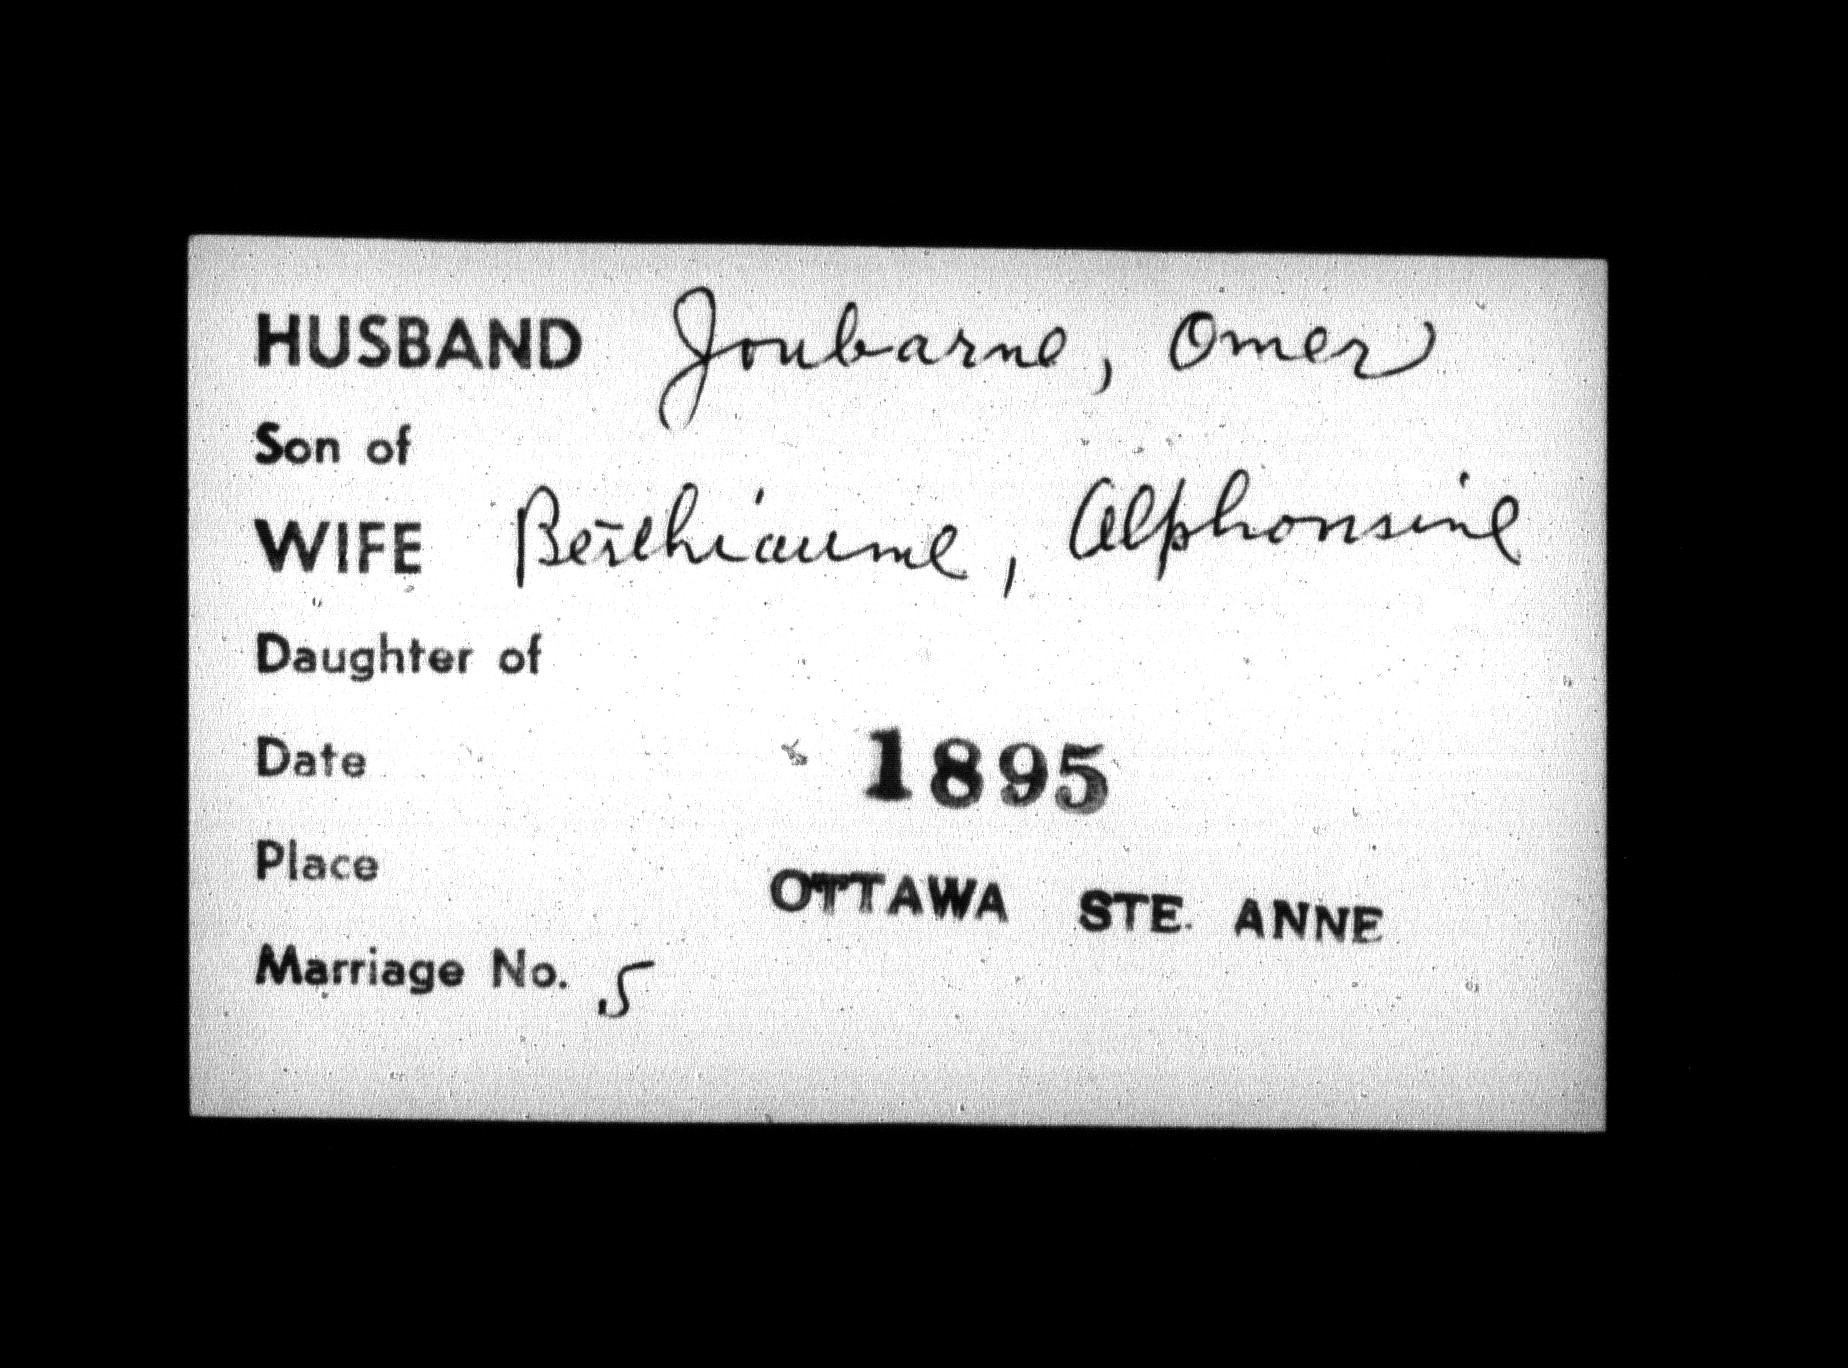 HUSBAND Joubarne, Omer
Son of
WIFE Berthiaume, Alphonsine
Daughter of
Date 1895
Place OTTAWA STE. ANNE
Marriage No. 5